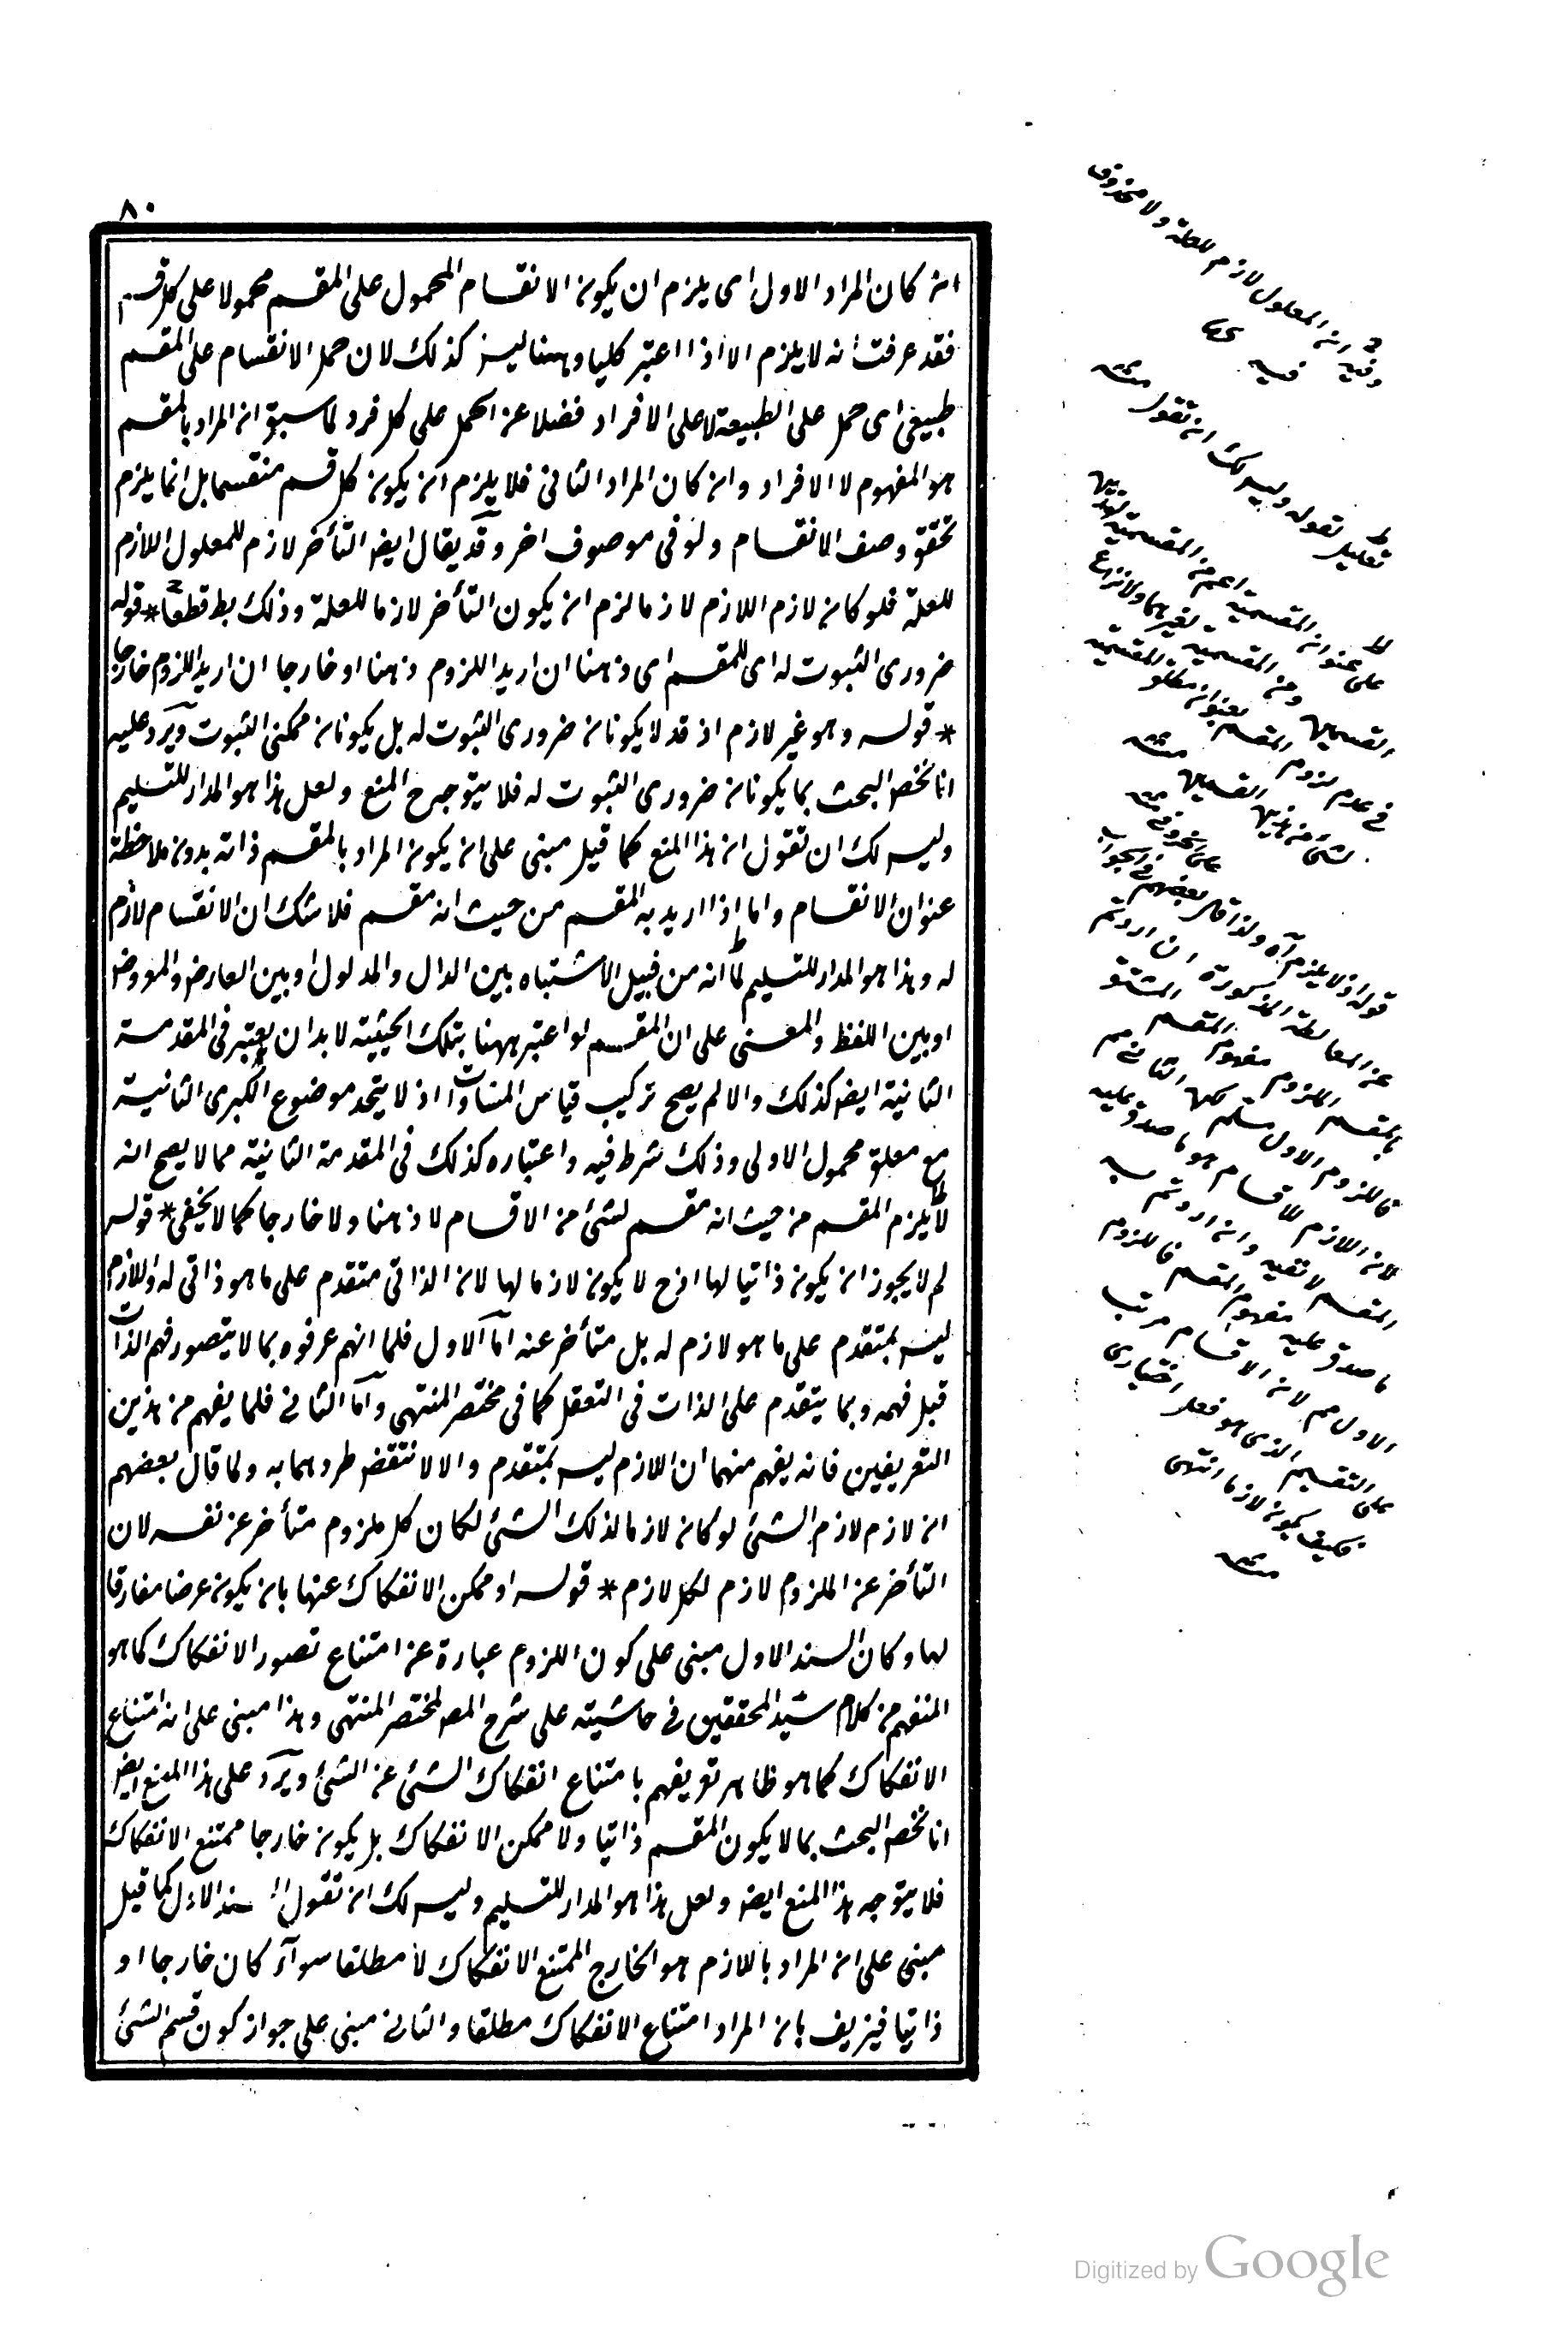 ٨٠
ان كان المراد الاول اى يلزم ان يكون الانقسام المحمول على المقسم محمولا على كل قسم
فقد عرفت انه لا يلزم الا اذا اعتبر كليا وههنا ليس كذلك لان حمل الانقسام على المقسم
طبيعى اى حمل على الطبيعة لا على الافراد فضلا عن الحمل على كل فرد لما سبق ان المراد بالمقسم
هو المفهوم لا الافراد وان كان المراد الثانى فلا يلزم ان يكون كل قسم منقسما بل انما يلزم
تحقق وصف الانقسام ولو فى موصوف اخر وقد يقال ايض التأخر لازم للمعلول اللازم
للعلة فلو كان لازم اللازم لازما لزم ان يكون التأخر لازما للعلة وذلك بط قطعا * قوله
ضرورى الثبوت له اى للمقسم اى ذهنا ان اريد اللزوم ذهنا او خارجا ان اريد اللزوم خارجا
* قوله وهو غير لازم اذ قد لا يكونان ضرورى الثبوت له بل يكونان ممكنى الثبوت ويرد عليه
انا نخص البحث بما يكونان ضرورى الثبوت له فلا يتوجه ح المنع ولعل هذا هو المدار للتسليم
وليس لك ان تقول ان هذا المنع كما قيل مبنى على ان يكون المراد بالمقسم ذاته بدون ملاحظة
عنوان الانقسام واما اذا اريد به المقسم من حيث انه مقسم فلا شك ان الانقسام لازم
له وهذا هو المدار للتسليم لما انه من قبيل الاشتباه بين الدال والمدلول او بين العارض والمعروض
او بين اللفظ والمعنى على ان المقسم لو اعتبر ههنا بتلك الحيثية لا بد ان يعتبر فى المقدمة
الثانية ايض كذلك والا لم يصح تركيب قياس المساوات اذ لا يتحد موضوع الكبرى الثانية
مع معلق محمول الاولى وذلك شرط فيه واعتباره كذلك فى المقدمة الثانية مما لا يصح انه
لا يلزم المقسم من حيث انه مقسم لشئ من الاقسام لا ذهنا ولا خارجا كما لا يخفى * قوله
لم لا يجوز ان يكون ذاتيا لها اذ ح لا يكون لازما لها لان الذاتى متقدم على ما هو ذاتى له واللازم
ليس بمتقدم على ما هو لازم له بل متأخر عنه اما الاول فلما انهم عرفوه بما لا يتصور فهم الذات
قبل فهمه وبما يتقدم على الذات فى التعقل كما فى مختصر المنتهى واما الثانى فلما يفهم من هذين
التعريفين فانه يفهم منهما ان اللازم ليس بمتقدم والا لانتقض طردهما به ولما قال بعضهم
ان لازم لازم الشئ لو كان لازما لذلك الشئ لكان كل ملزوم متأخر عن نفسه لان
التأخر عن الملزوم لازم لكل لازم * قوله او ممكن الانفكاك عنها بان يكون عرضا مفارقا
لها وكان السند الاول مبنى على كون اللزوم عبارة عن امتناع تصور الانفكاك كما هو
المنفهم من كلام سيد المحققين فى حاشيته على شرح المص لمختصر المنتهى وهذا مبنى على انه امتناع
الانفكاك كما هو ظاهر تعريفهم بامتناع انفكاك الشئ عن الشئ ويرد على هذا المنع ايض
انا نخص البحث بما لا يكون المقسم ذاتيا ولا ممكن الانفكاك بل يكون خارجا ممتنع الانفكاك
فلا يتوجه هذا المنع ايض ولعل هذا هو المدار للتسليم وليس لك ان تقول السند الاول كما قيل
مبنى على ان المراد باللازم هو الخارج الممتنع الانفكاك لا مطلقا سواء كان خارجا او
ذاتيا فيزيف بان المراد امتناع الانفكاك مطلقا والثانى مبنى على جواز كون قسم الشئ
وفيه ان المعلول لازم للعلة ولا محذور
فيه
منه
تعليل لقوله وليس لك ان تقول
منه
قوله اذ لا يلزم آه ولذا قال بعضهم فى الجواب
عن المغالطة المذكورة ان اردتم
بالمقسم الملزوم مفهوم المقسم
فاللزوم الاول مسلم لكن الثانى مم
لان اللازم للاقسام هو ما صدق عليه
المقسم لا نفسه وان اردتم به
ما صدق عليه مفهوم المقسم فاللزوم
الاول مم لان الاقسام مرتب
على التقسيم الذى هو فعل اختيارى
فكيف يكون لازما انتهى
منه
Digitized by Google